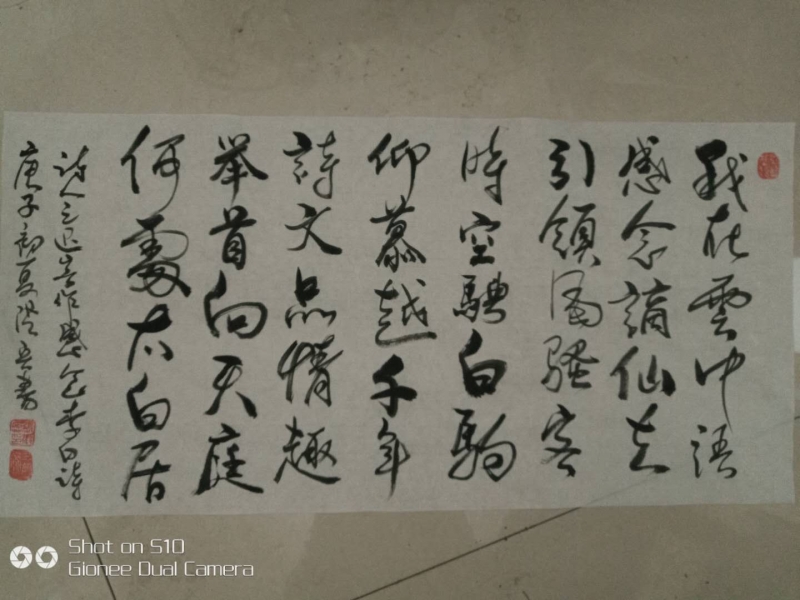 我在雲中語
感念謫仙之
引領風騷客
時空騁白駒
仰慕越千年
詩文品情趣
举首向天庭
何處太白居
诗人之迟 作 感念李白诗
庚子初夏 书
Shot on S10
Gionee Dual Camera